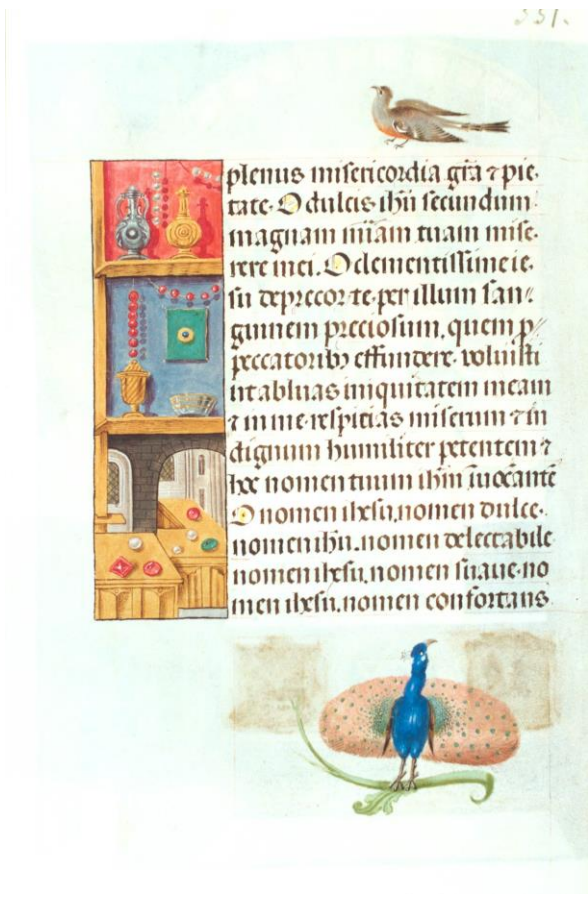 331.
plenus misericordia gr̄a ⁊ pie-
tate. O dulcis ih̄u secundum
magnam m̄iam tuam mise-
rere mei. O clementissime ie-
su deprecor te. per illum san-
guinem preciosum. quem p̱
peccatorib⁹ effundere. voluisti
ut abluas iniquitatem meam
⁊ in me. respicias miserum ⁊ in
dignum humiliter petentem ⁊
hoc nomen tuum ih̄m īuocantē
O nomen ihesu. nomen dulce.
nomen ih̄u. nomen delectabile
nomen ihesu. nomen suaue. no
men ihesu. nomen confortans